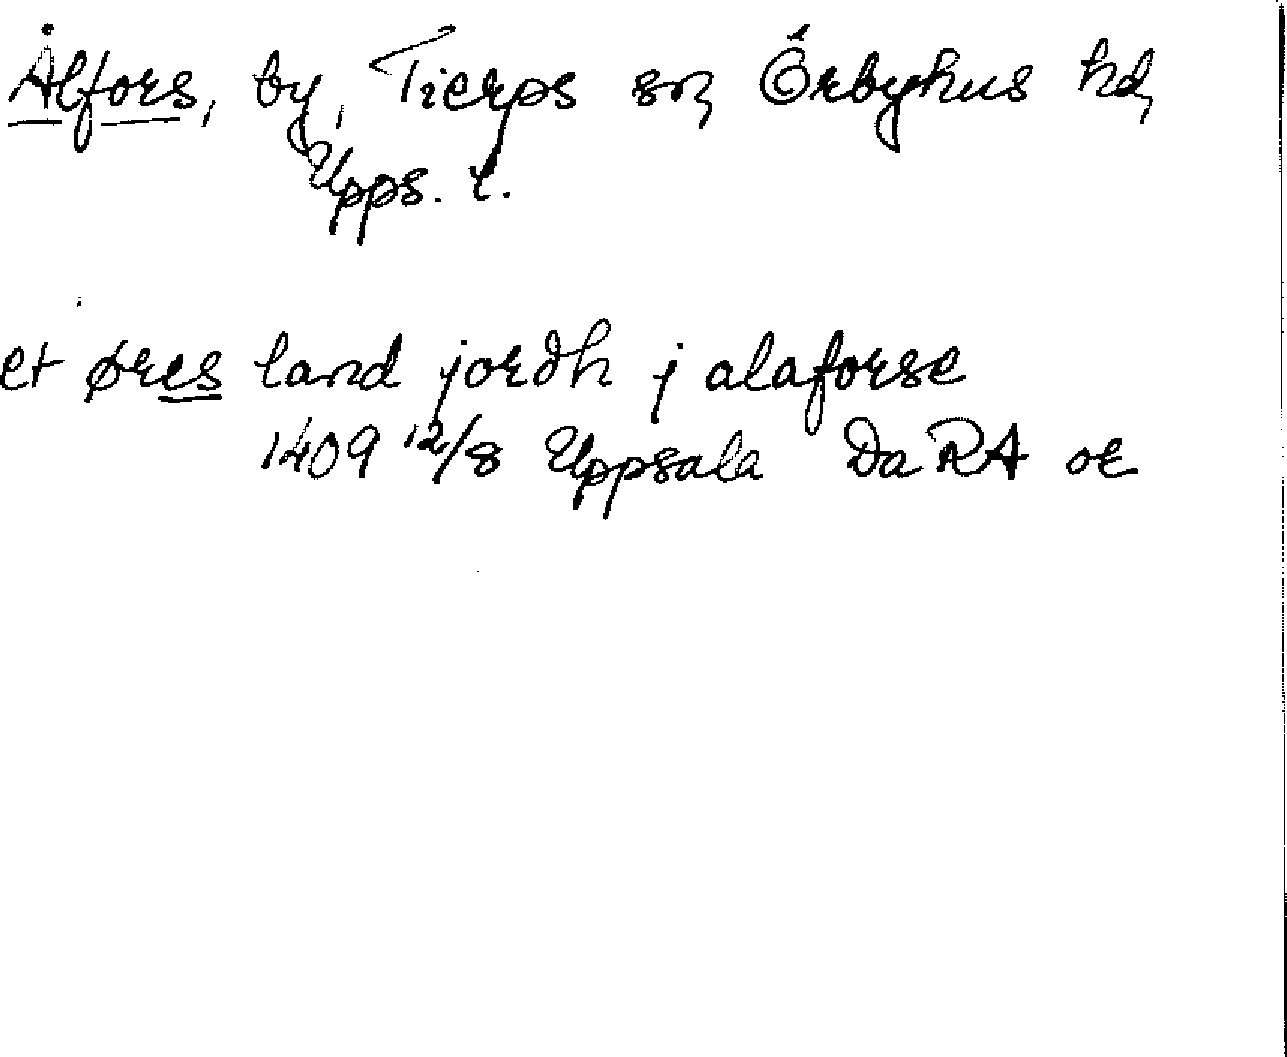 Ålfors, by, Tierps sn, Örbyhus hd,
Upps. l.
et øres land jordh j alaforse
1409 12/8 Uppsala Da RA or